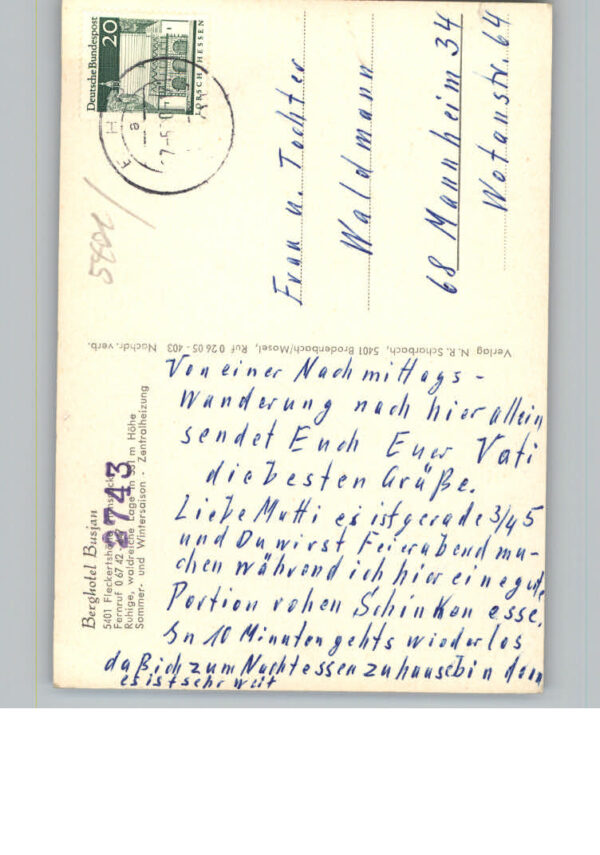 Deutsche Bundespost
20
LORSCH/HESSEN
Frau u. Tochter
Waldmann
68 Mannheim 34
Wotanstr. 64
Verlag N. R. Scharbach, 5401 Brodenbach/Mosel, Ruf 0 26 05 - 403 Nachdr. verb.
Berghotel Busjan
5401 Fleckertshöhe
Fernruf 0 67 42
Ruhige, waldreiche Lage in 531 m Höhe
Sommer- und Wintersaison - Zentralheizung
2743
Von einer Nachmittags -
Wanderung nach hier allein
sendet Euch Euer Vati
die besten Grüße.
Liebe Mutti es ist gerade 3/4 5
und Du wirst Feierabend ma-
chen während ich hier eine gute
Portion rohen Schinken esse.
In 10 Minuten gehts wieder los
daß ich zum Nachtessen zuhause bin denn
es ist sehr weit